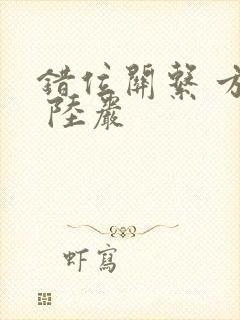 錯位關繫 方
陸嚴
虾寫